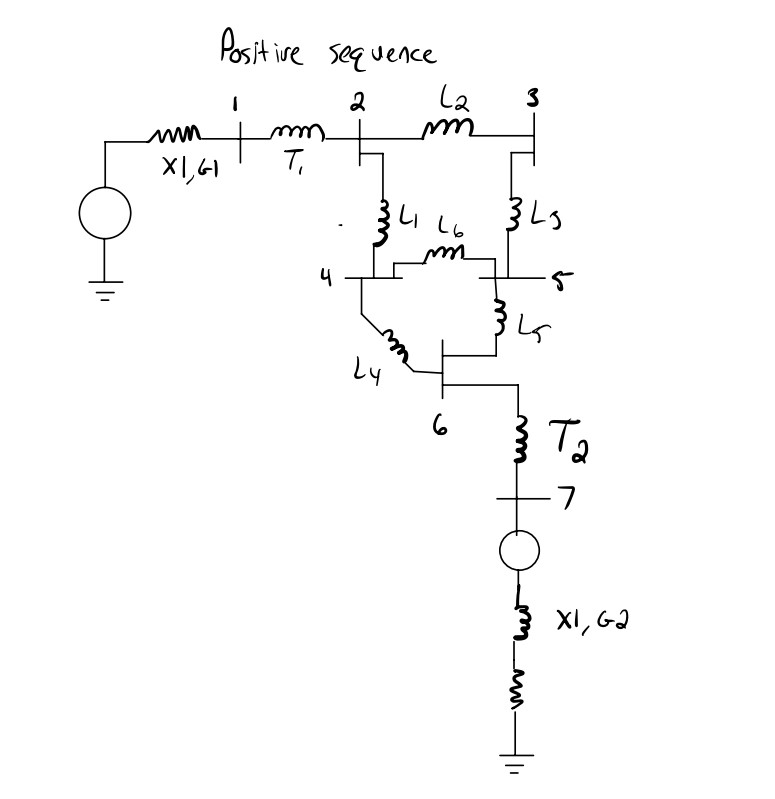 Positive sequence
1
2
L2
3
X1,G1
T1
L1
L6
L3
4
5
L5
L4
6
T2
7
X1,G2